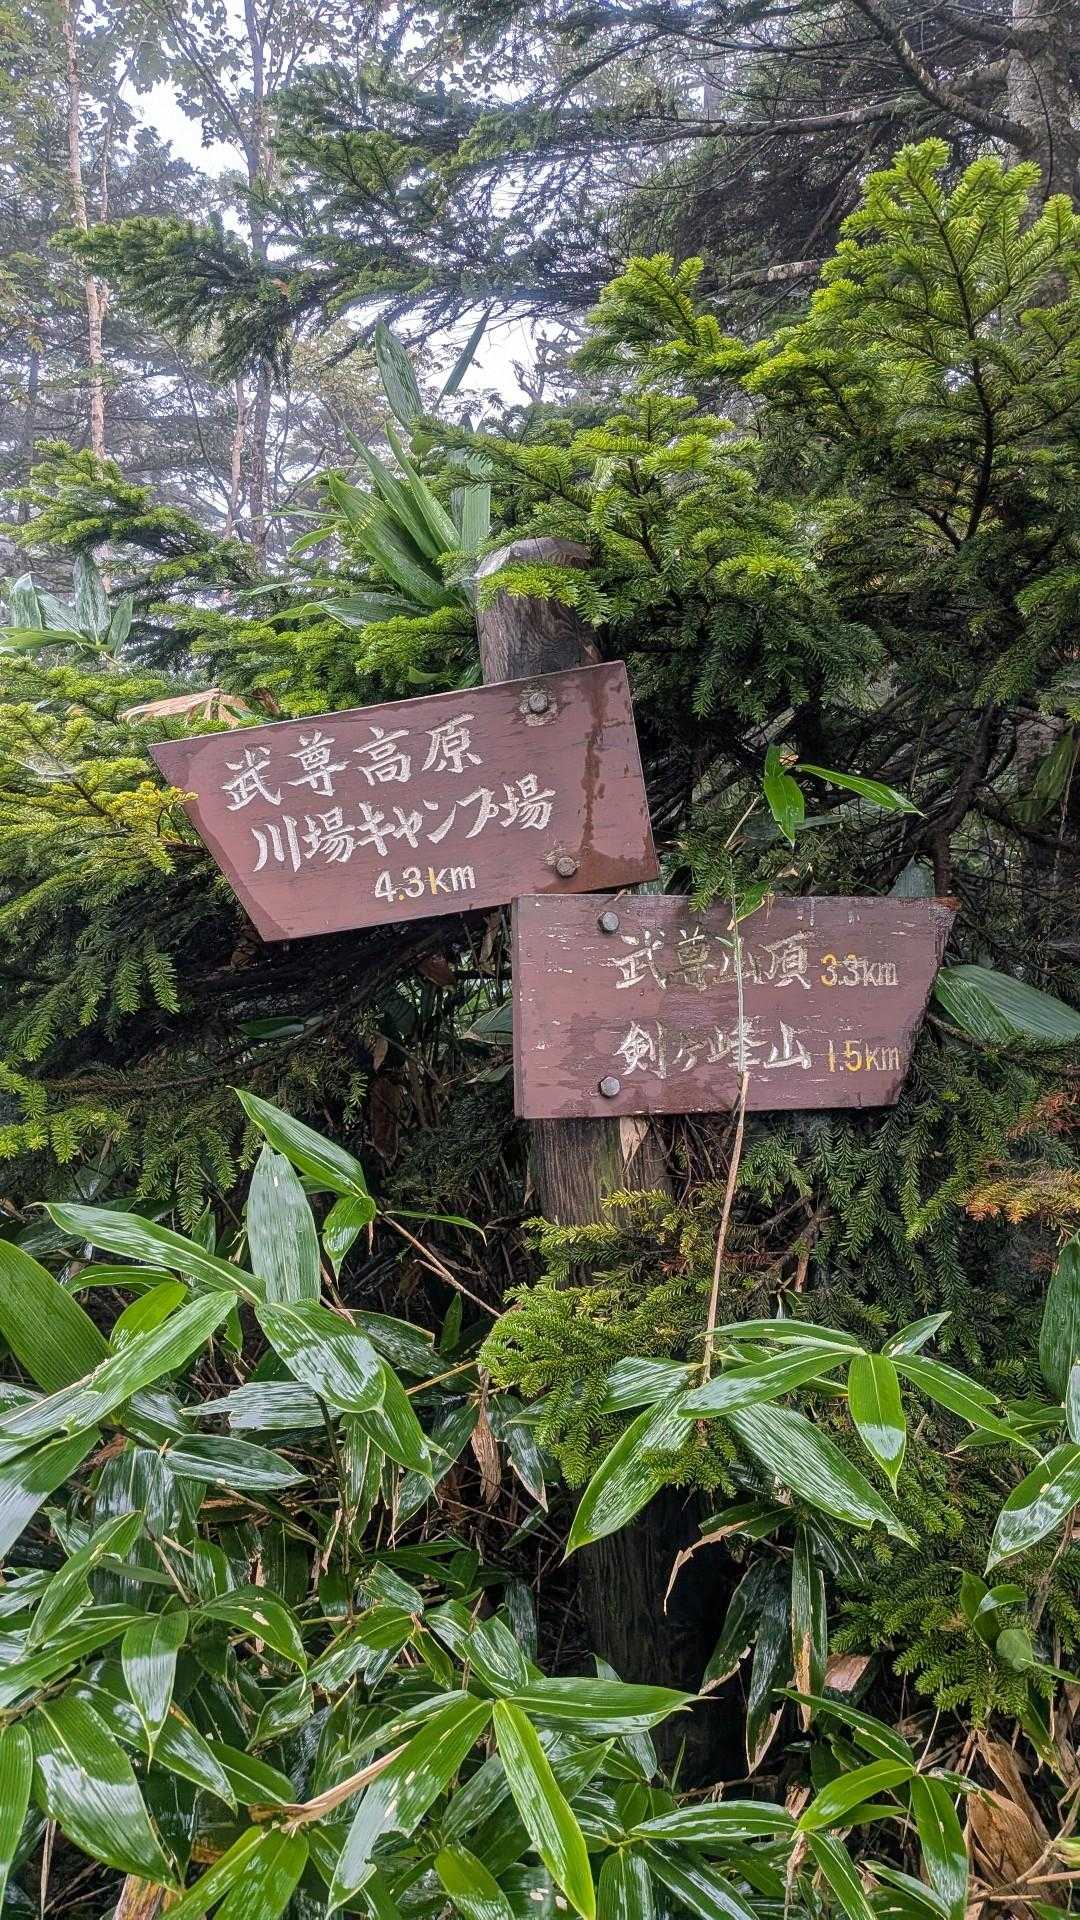 武尊高原
川場キャンプ場
4.3km
武尊山頂 3.3km
剣ヶ峰山 1.5km